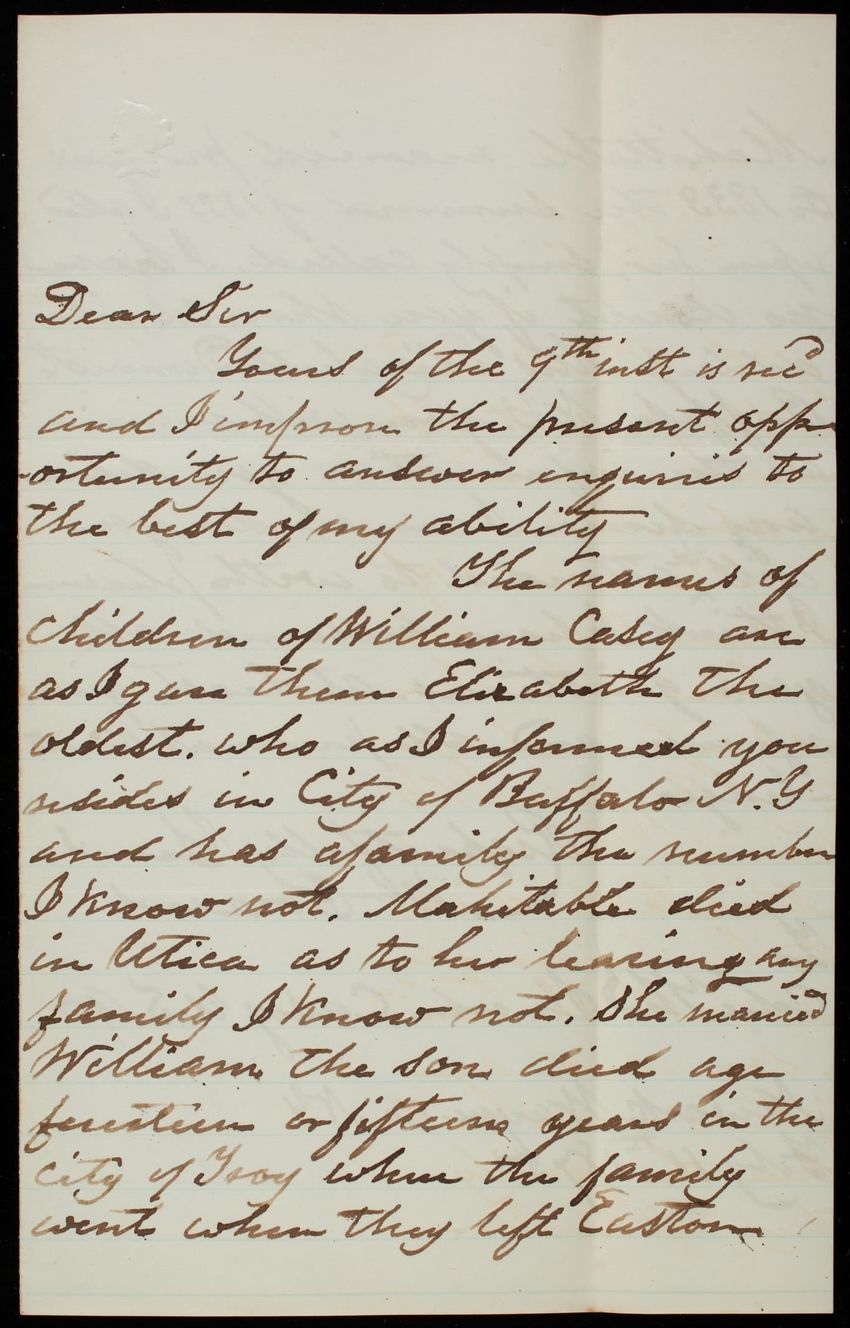 Dear Sir
Yours of the 9th inst is recd
and I improve the present opp
-ortunity to answer enquiries to
the best of my ability
The names of
children of William Casey are
as I gave them Elizabeth the
oldest. who as I informed you
resides in City of Buffalo N.Y
and has a family the number
I know not. Mahitable died
in Utica as to her leaving any
family I know not. She married
William the son died age
fourteen or fifteen years in the
city of Troy where the family
went when they left Easton